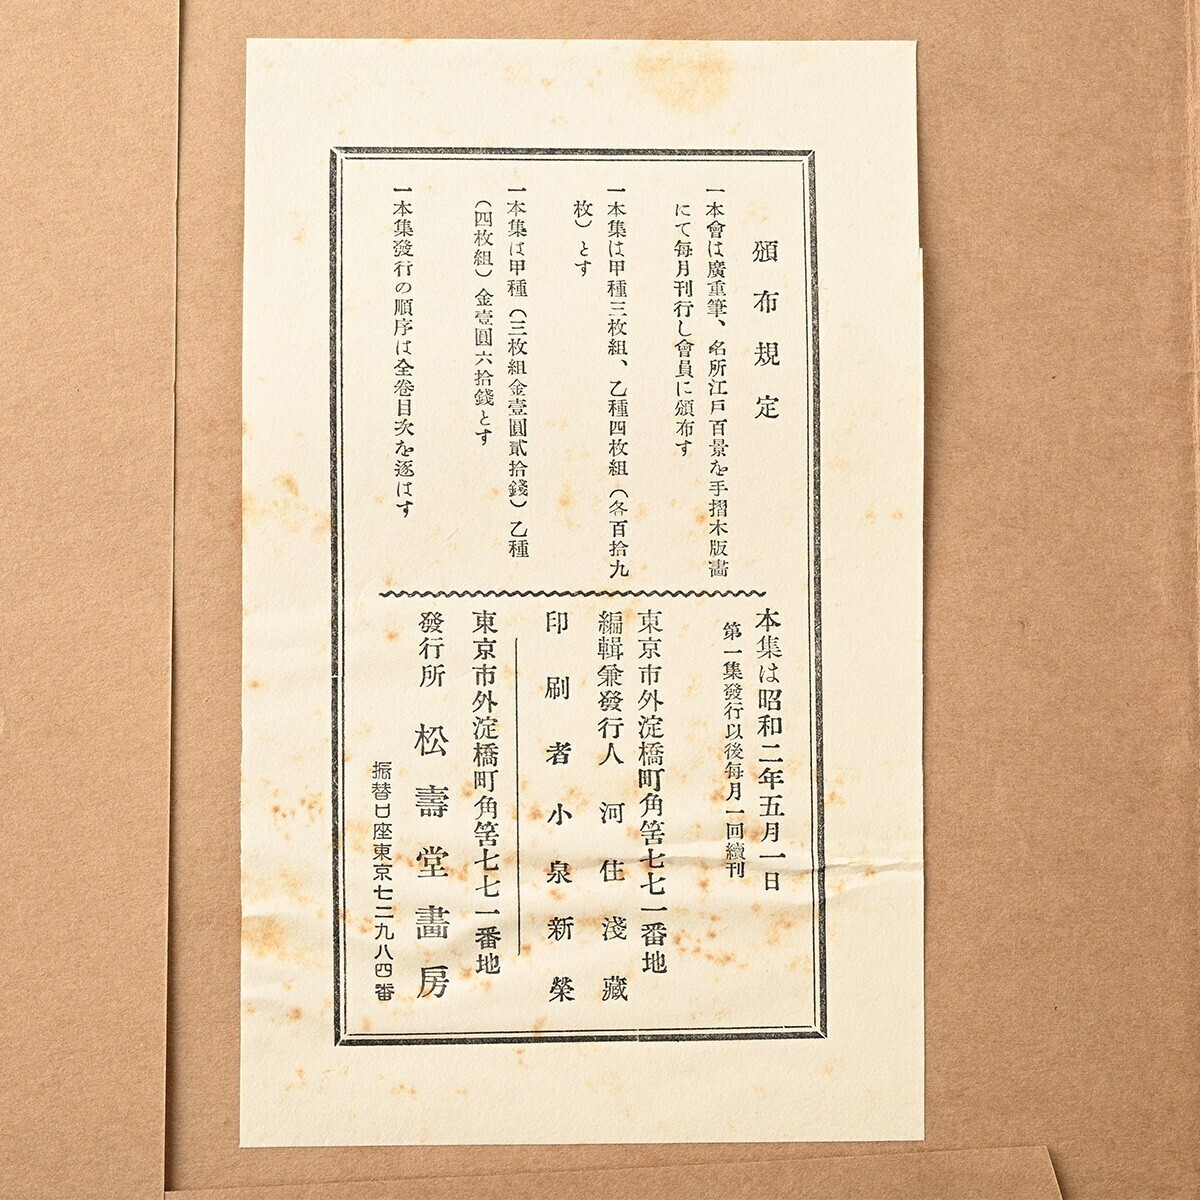 頒布規定
一本會は廣重筆、名所江戸百景を手摺木版畵
にて每月刊行し會員に頒布す
一本集は甲種三枚組、乙種四枚組(各百拾九
枚)とす
一本集は甲種(三枚組金壹圓貳拾錢)乙種
(四枚組)金壹圓六拾錢とす
一本集發行の順序は全卷目次を逐はす
本集は昭和二年五月一日
第一集發行以後每月一回續刊
東京市外淀橋町角筈七七一番地
編輯兼發行人 河住淺藏
印刷者 小泉新榮
東京市外淀橋町角筈七七一番地
發行所 松壽堂畵房
振替口座東京七二九八四番